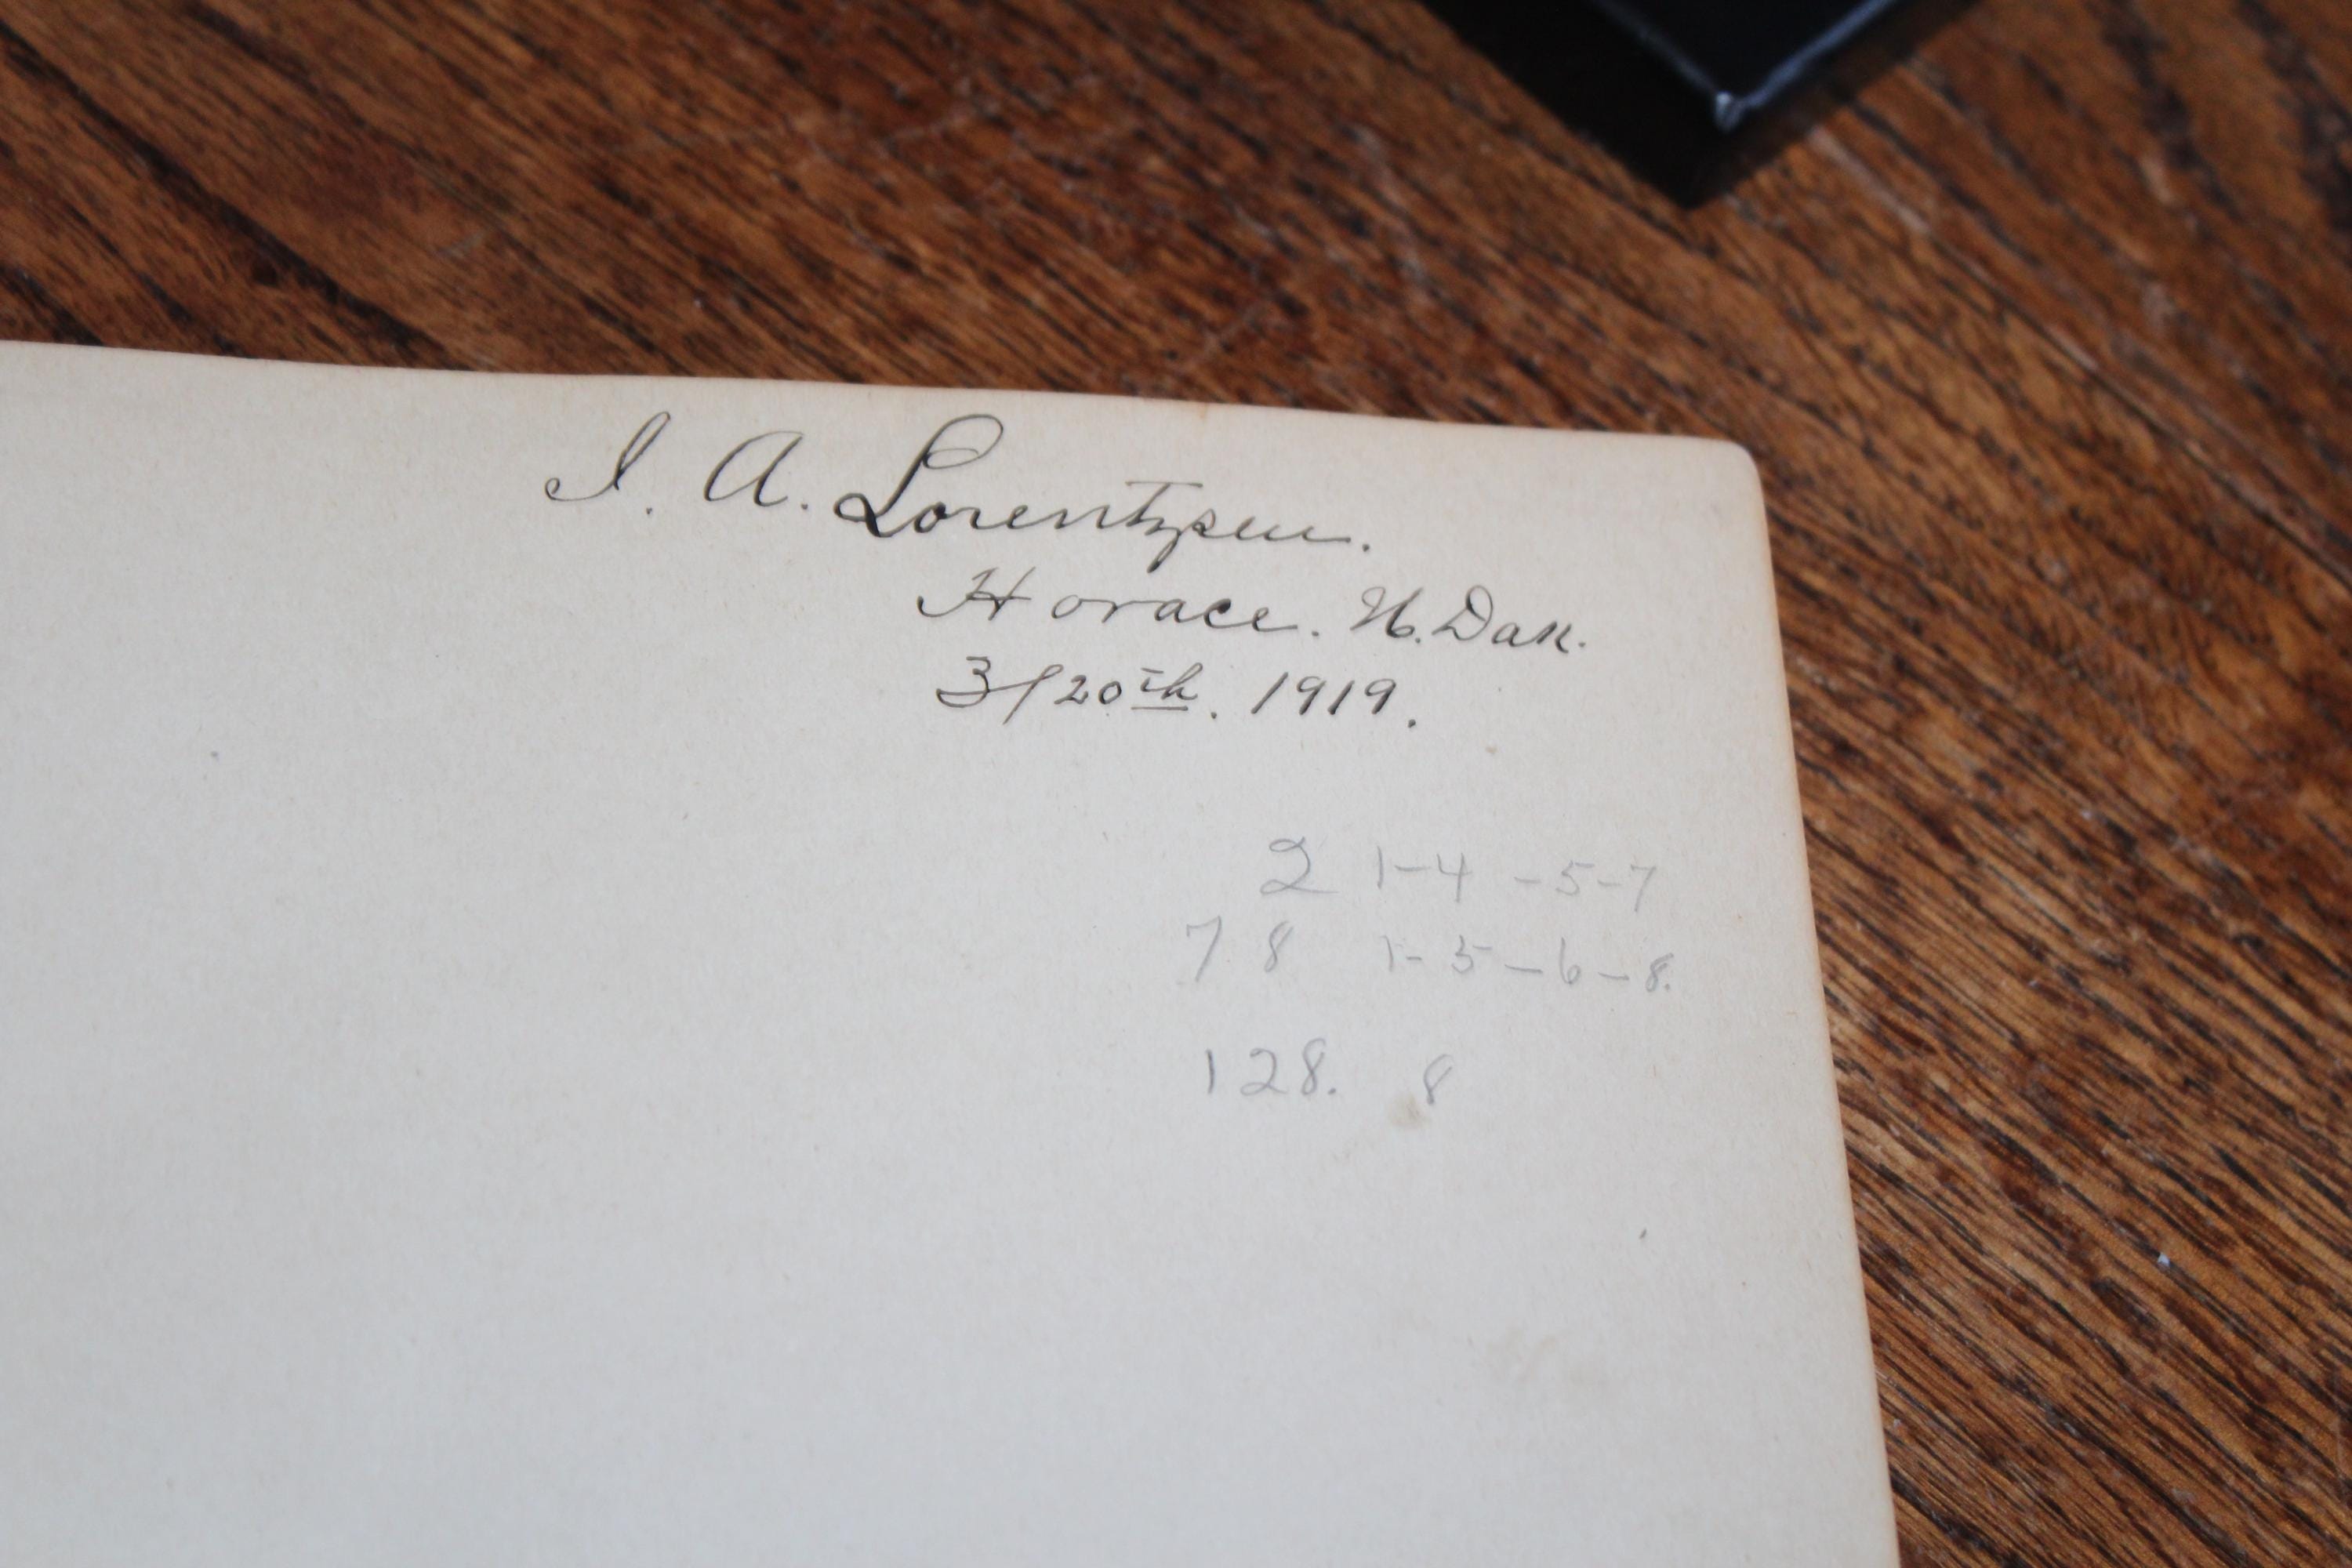 I. A. Lorentzen.
Horace. N. Dak.
3/20th. 1919.
2 1-4 -5-7
78 1-5-6-8.
128. 8